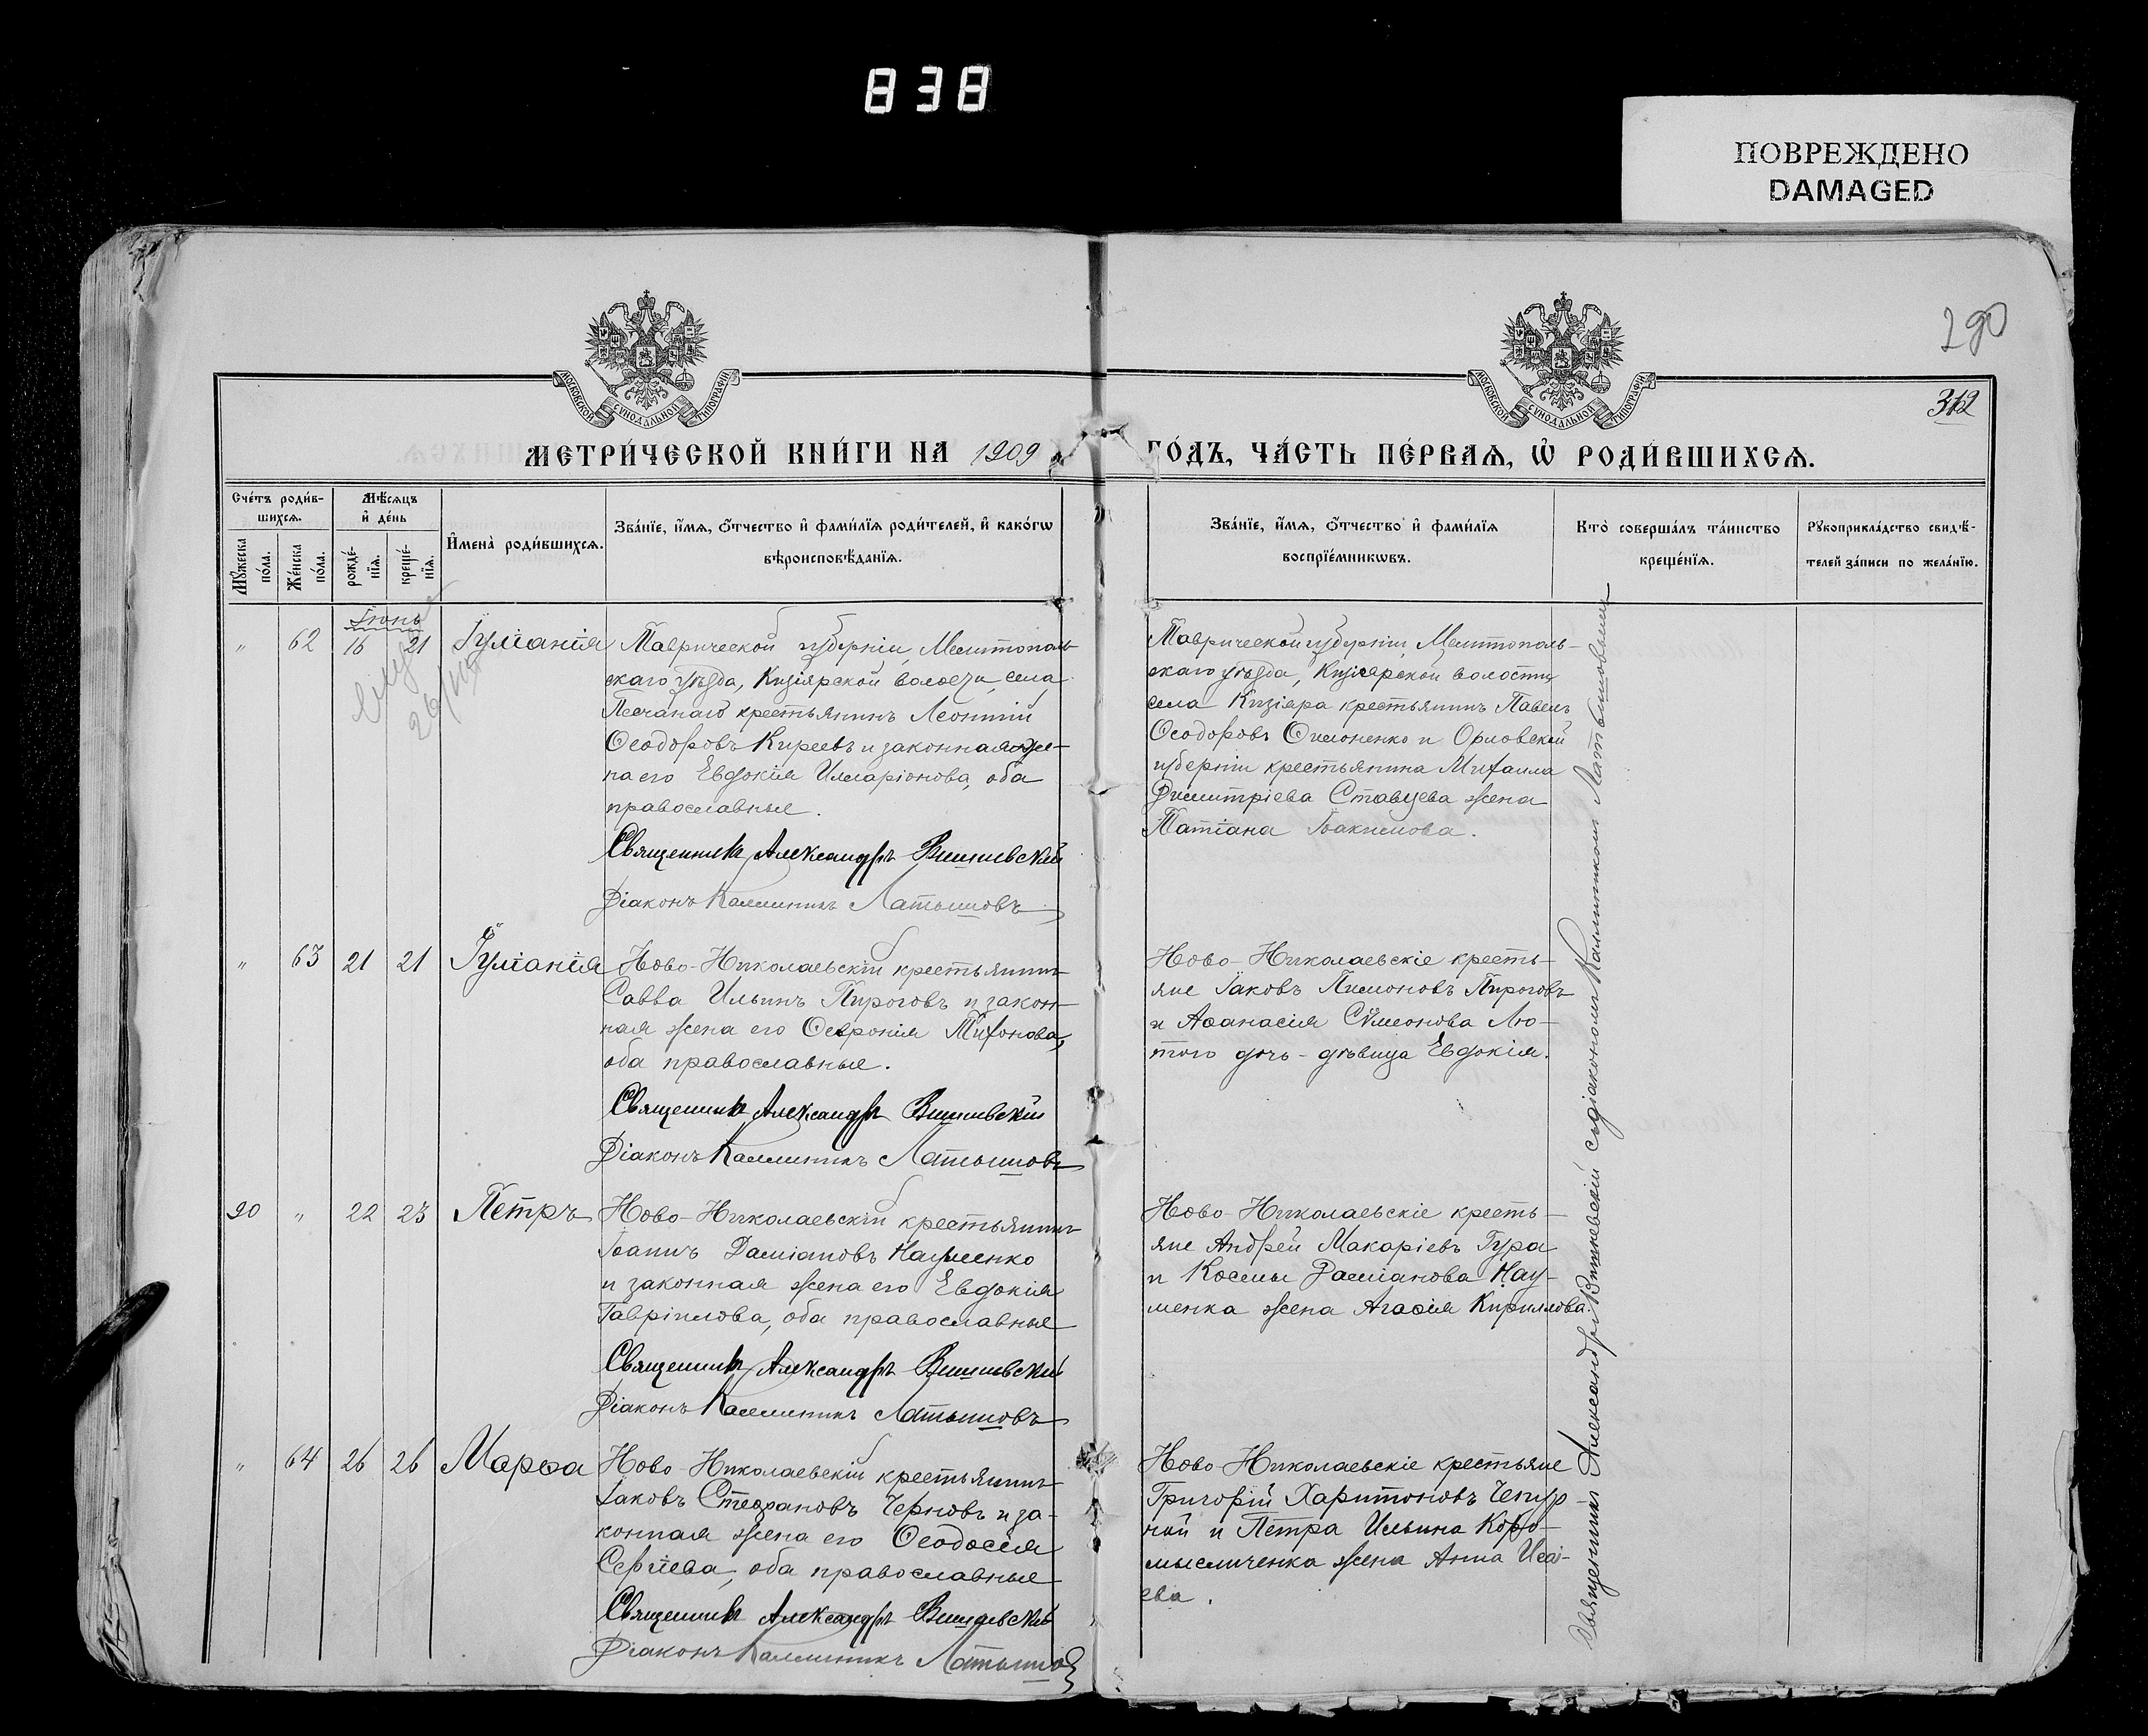 838
ПОВРЕЖДЕНО
DAMAGED
290
312
МОСКОВСКОЙ СѴНОДАЛЬНОЙ ТИПОГРАФІИ
МОСКОВСКОЙ СѴНОДАЛЬНОЙ ТИПОГРАФІИ
МЕТРИ́ЧЕСКОЙ КНИ́ГИ НА 1909 ГО́ДЪ, ЧА́СТЬ ПЕ́РВАѦ, Ѡ҆ РОДИ́ВШИХСѦ.
Сче́тъ роди́в-
шихсѧ.
Мꙋ́жеска по́ла.
Же́нска по́ла.
Мѣ́сѧцъ
и҆ де́нь
рожде́-
нїѧ.
креще́-
нїѧ.
И҆мена̀ роди́вшихсѧ.
Зва́нїе, и҆́мѧ, ѻ҆́тчество и҆ фами́лїѧ роди́телей, и҆ како́гѡ
вѣроисповѣ́данїѧ.
Зва́нїе, и҆́мѧ, ѻ҆́тчество и҆ фами́лїѧ
воспрїе́мникѡвъ.
Кто̀ соверша́лъ та́инство
креще́нїѧ.
Рꙋкоприкла́дство свидѣ́-
телей за́писи по жела́нїю.
Іюнь
" 62 16 21 Іуліанія
Таврической губерніи, Мелитополь-
скаго уѣзда, Кизіярской волости, села
Песчанаго крестьянинъ Леонтій
Ѳеодоровъ Киреевъ и законная же-
на его Евдокія Илларіонова, оба
православные.
Священникъ Александръ Вишневскій
Діаконъ Каллиникъ Латышовъ
Таврической губерніи, Мелитополь-
скаго уѣзда, Кизіярской волости
села Кизіяра крестьянинъ Павелъ
Ѳеодоровъ Симоненко и Орловской
губерніи крестьянина Михаила
Димитріева Ставцева жена
Татіана Іоакимова.
" 63 21 21 Іуліанія
Ново-Николаевскій крестьянинъ
Савва Ильинъ Пироговъ и закон-
ная жена его Ѳеѵронія Тихонова,
оба православные.
Священникъ Александръ Вишневскій
Діаконъ Каллиникъ Латышовъ
Ново-Николаевскіе кресть-
яне Іаковъ Пимоновъ Пироговъ
и Аѳанасія Сѵмеонова Лю-
того дочь-дѣвица Евдокія.
90 " 22 23 Петръ
Ново-Николаевскій крестьянинъ
Іоаннъ Даміановъ Науменко
и законная жена его Евдокія
Гавріилова, оба православные
Священникъ Александръ Вишневскій
Діаконъ Каллиникъ Латышовъ
Ново-Николаевскіе кресть-
яне Андрей Макаріевъ Гура
и Космы Даміанова Нау-
менка жена Агаѳія Кириллова.
" 64 26 26 Марѳа
Ново-Николаевскій крестьянинъ
Іаковъ Стефановъ Черновъ и за-
конная жена его Ѳеодосія
Сергіева, оба православные
Священникъ Александръ Вишневскій
Діаконъ Каллиникъ Латышовъ
Ново-Николаевскіе крестьяне
Григорій Харитоновъ Чепур-
ной и Петра Ильина Коро-
мысличенка жена Анна Исаі-
ева.
Священникъ Александръ Вишневскій съ діакономъ Каллиникомъ Латышовымъ